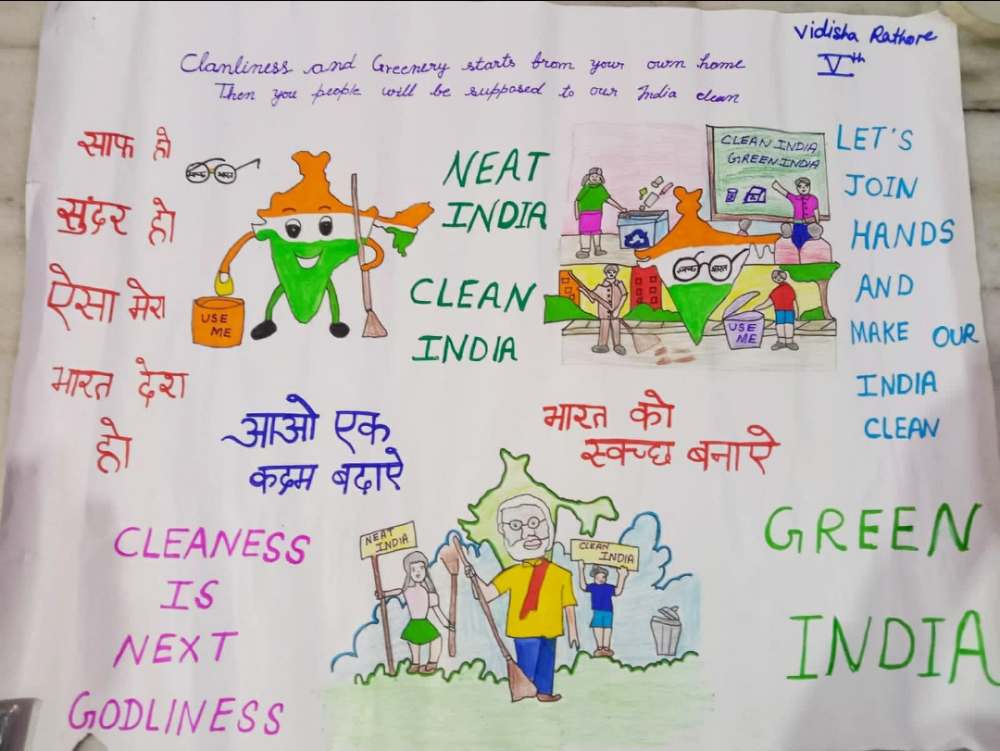 Vidisha Rathore
Vth
Clanliness and Greenery starts from your own home
Then you people will be supposed to our India clean
साफ हो
सुंदर हो
ऐसा मेरा
भारत देश
हो
स्वच्छ भारत
USE
ME
NEAT
INDIA
CLEAN
INDIA
CLEAN INDIA
GREEN INDIA
स्वच्छ भारत
USE
ME
LET'S
JOIN
HANDS
AND
MAKE OUR
INDIA
CLEAN
आओ एक
कदम बढ़ाऐ
भारत को
स्वच्छ बनाऐ
CLEANESS
IS
NEXT
GODLINESS
NEAT
INDIA
CLEAN
INDIA
GREEN
INDIA